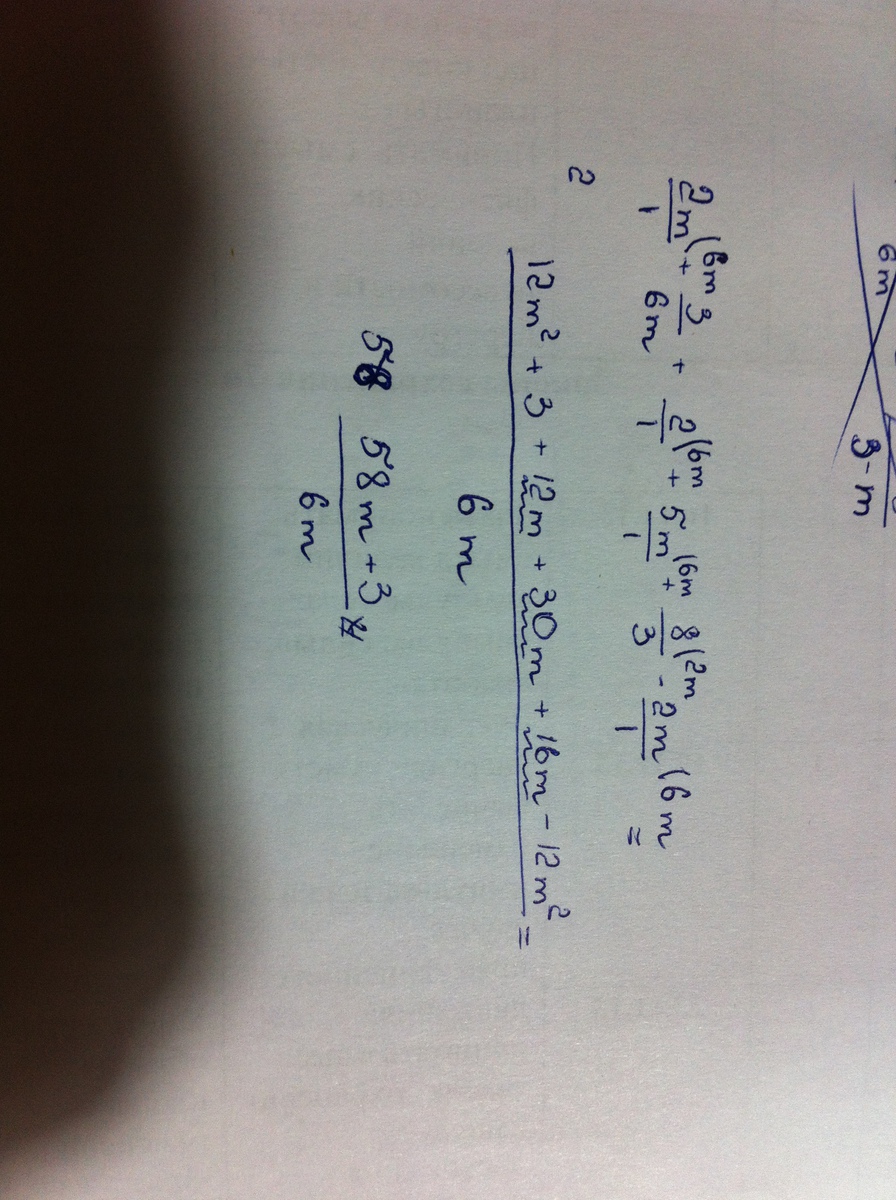 6m 3-m
2m/1 (6m + 3/6m + 2/1 (6m + 5m/1 (6m + 8/3 (2m - 2m/1 (6m =
2
12m² + 3 + 12m + 30m + 16m - 12m² =
6m
58 58m + 3
6m